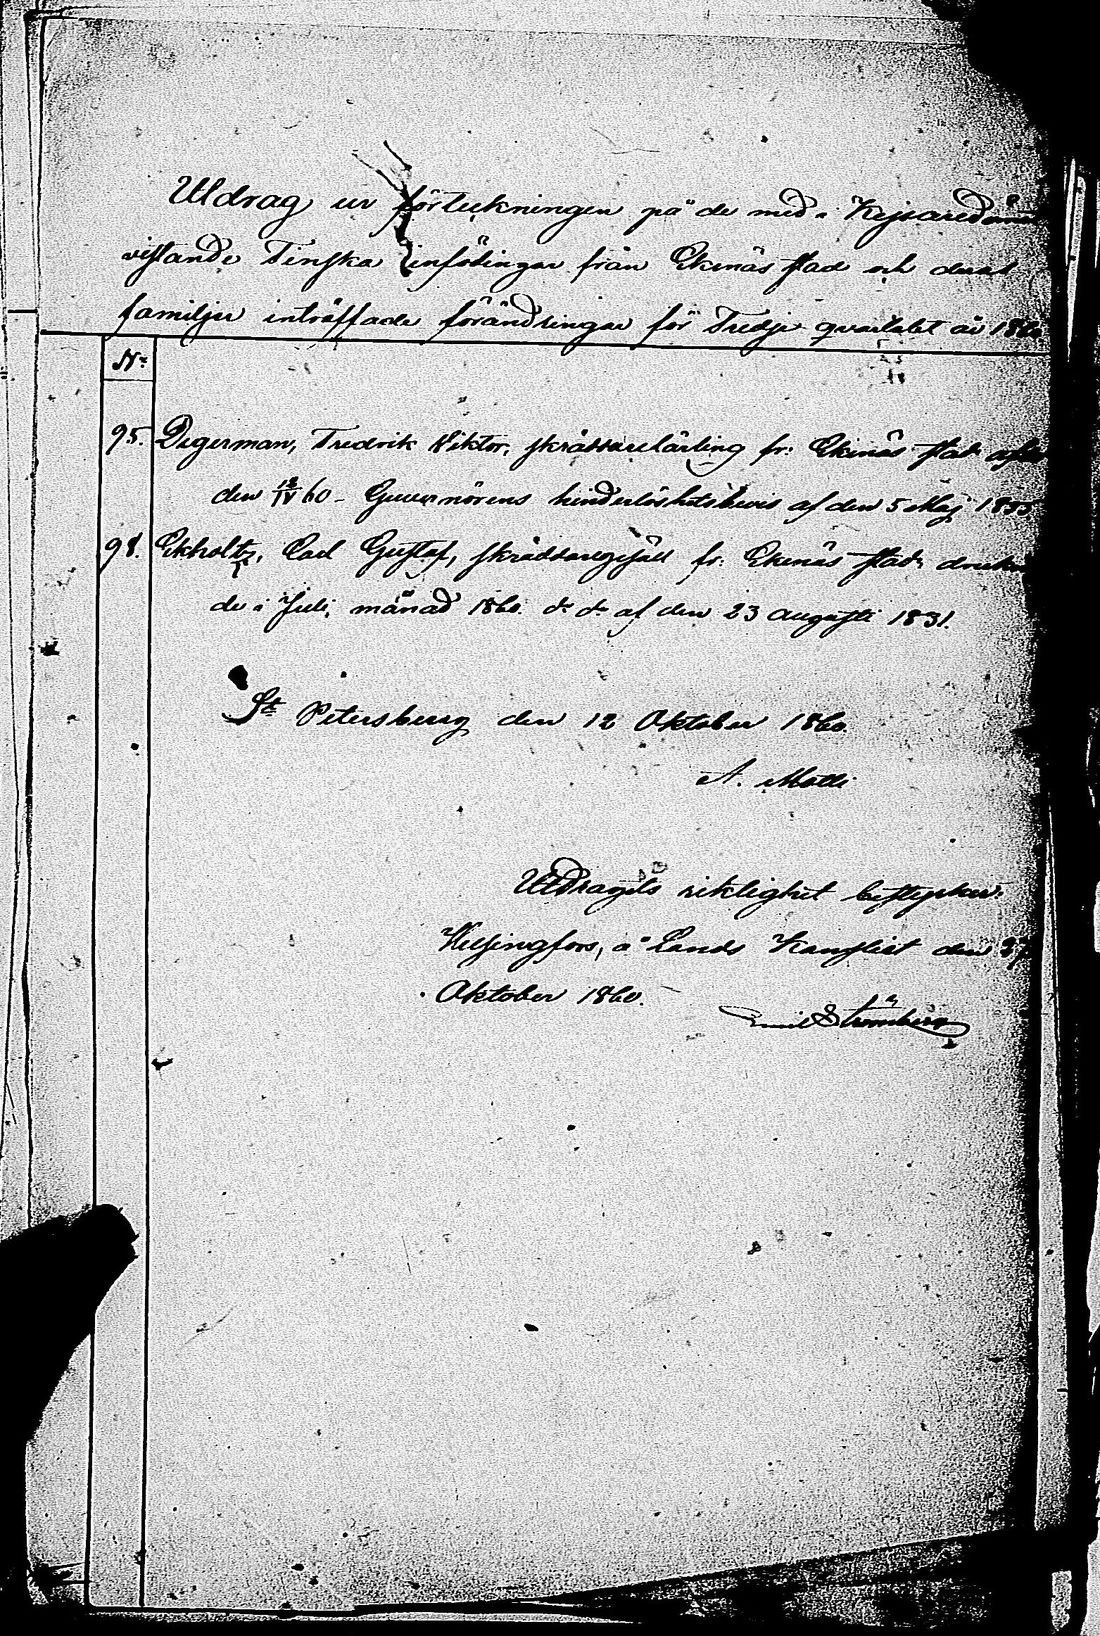 Utdrag ur förteckningen på de med i Kejsaredöm
vistande Finska infödingar från Ekenäs stad och deras
familjer inträffade förändringar för Tredje qvartalet år 1860
No
95. Degerman, Fredrik Viktor, skräddarelärling fr: Ekenäs stad
den 60 – Guvernörens hinderlöshetsbevis af den 5 Maj 1855
98. Ekholtz, Carl Gustaf, skräddaregesäll fr: Ekenäs stad, drunkna
de i Juli månad 1860. d:o d:o af den 23 Augusti 1831.
St Petersburg den 12 Oktober 1860.
A. Molli
Utdragets riktighet bestyrker.
Helsingfors, å Lands Kansliet den 27
Oktober 1860.
Emil Strömberg